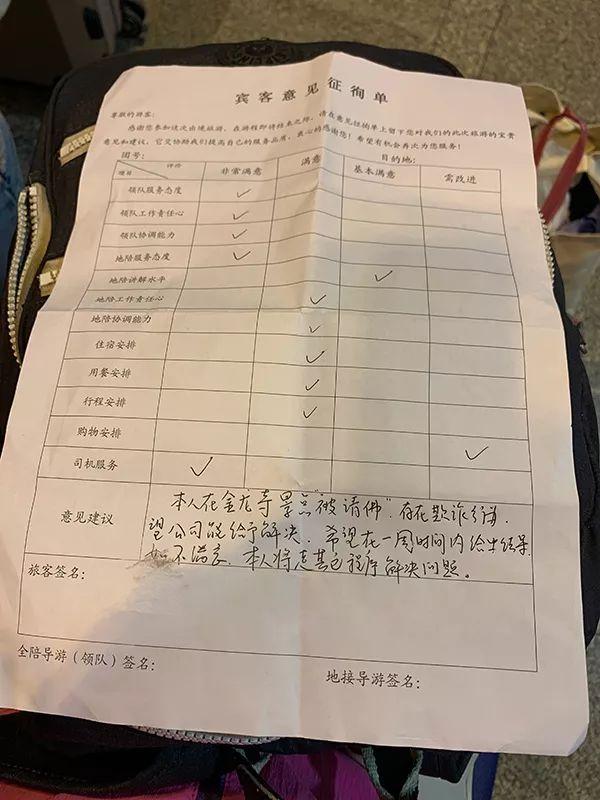 宾客意见征徇单
尊敬的游客:
感谢您参加这次出境旅游,在游程即将结束之际,请在意见征徇单上留下您对我们的此次旅游的宝贵
意见和建议,它交协助我们提高自己的服务品质,衷心的感谢您!希望有机会再次为您服务!
团号: 目的地:
评价
项目 非常满意 满意 基本满意 需改进
领队服务态度 ✓
领队工作责任心 ✓
领队协调能力 ✓
地陪服务态度 ✓
地陪讲解水平 ✓
地陪工作责任心 ✓
地陪协调能力 ✓
住宿安排 ✓
用餐安排 ✓
行程安排 ✓
购物安排 ✓
司机服务 ✓
意见建议
本人在金龙寺景点"被请佛",存在欺诈行为,
望公司能给予解决,希望在一周时间内给出结果
如不满意,本人将走其它程序解决问题。
旅客签名:
全陪导游(领队)签名:
地接导游签名: